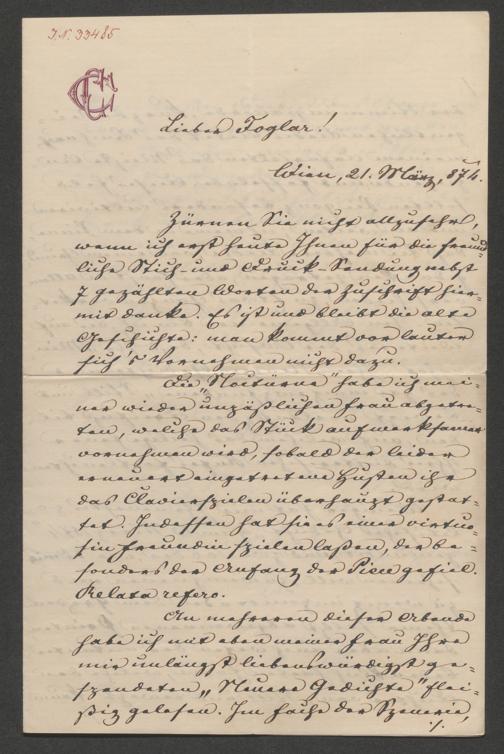 I.N. 33485
CC
Lieber Foglar!
Wien, 21. März, 874.
Zürnen Sie nicht allzusehr,
wenn ich erst heute Ihnen für die freund-
liche Stich- und Druck-Sendung nebst
7 gezählten Worten der Zuschrift hier-
mit danke. Es ist und bleibt die alte
Geschichte: man kommt vor lauter
sich's Vornehmen nicht dazu.
Die „Nocturne" habe ich mei-
ner wieder unpäßlichen Frau abgetre-
ten, welche das Stück aufmerksamer
vornehmen wird, sobald der leider
erneuert eingetretene Husten ihr
das Clavierspielen überhaupt gestat-
tet. Indessen hat sie es einer virtuo-
sin Freundin spielen laßen, der be-
sonders der Anfang der Piece gefiel.
Relata refero.
An mehreren dieser Abende
habe ich mit eben meiner Frau Ihre
mir unlängst liebenswürdigst ge-
spendeten „Neuere Gedichte" flei-
ßig gelesen. Im Fache der Szenerie,
./.